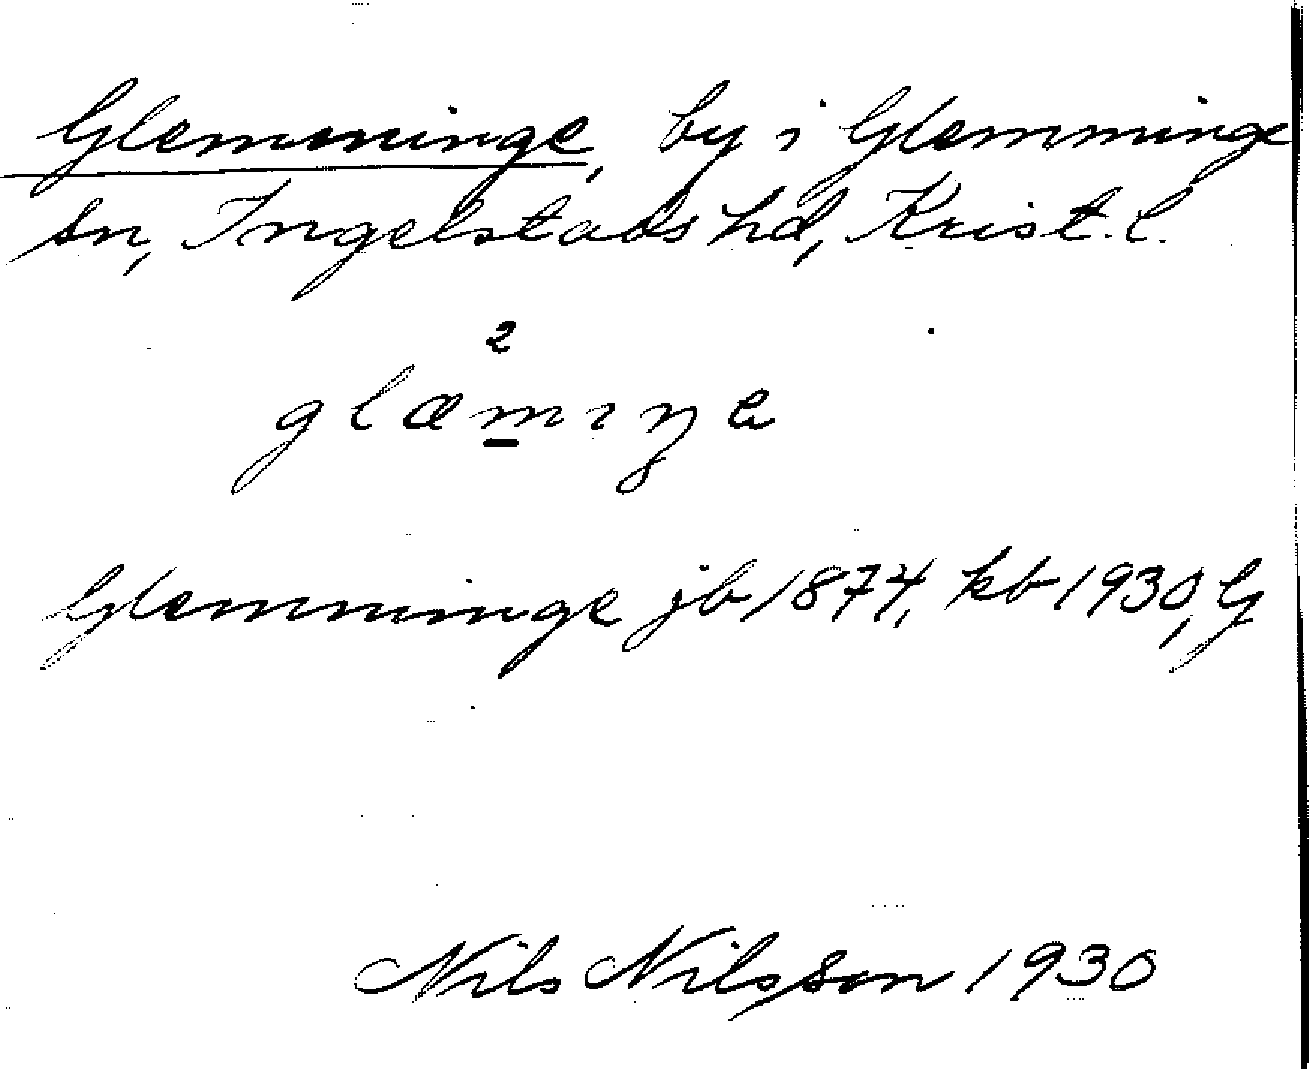 Glemminge, by i Glemminge
sn, Ingelstads hd, Krist. l.
2
glæmıŋe
Glemminge jb 1874, kb 1930, G
Nils Nilsson 1930